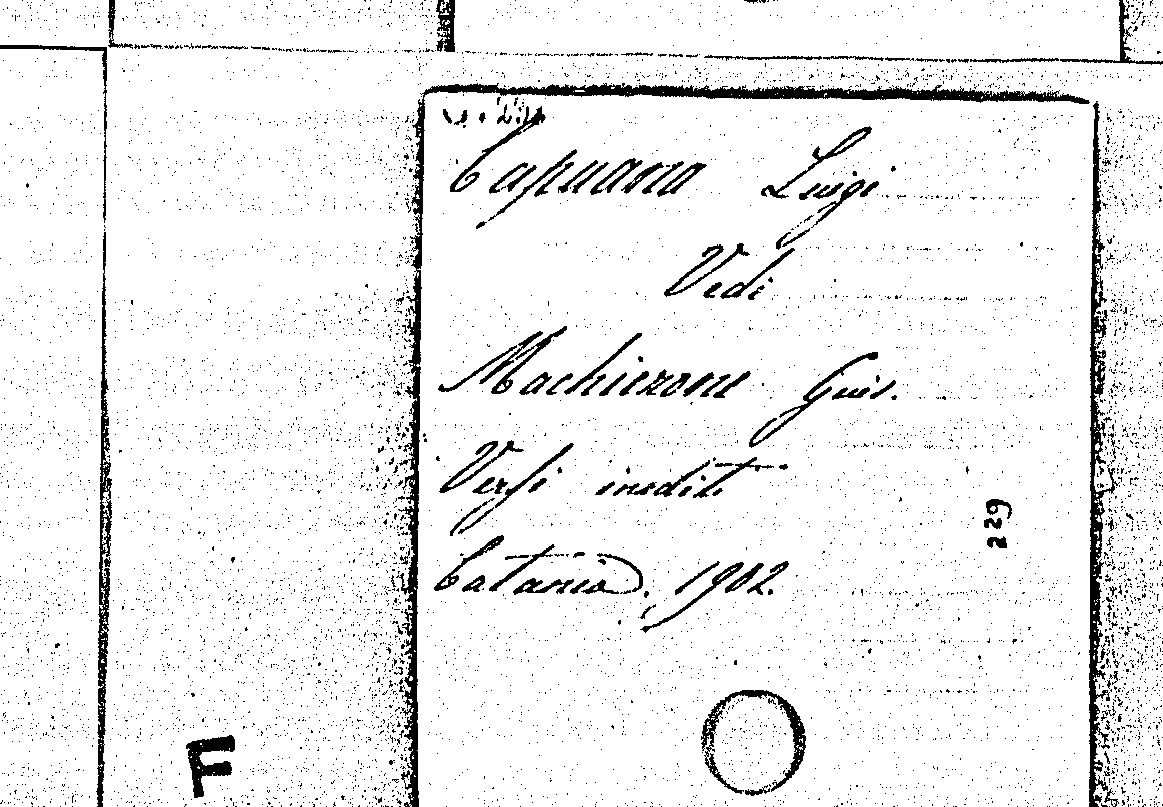 Capuana Luigi
Vedi
Machierone Gius.
Versi inediti
Catania, 1902.
229
F